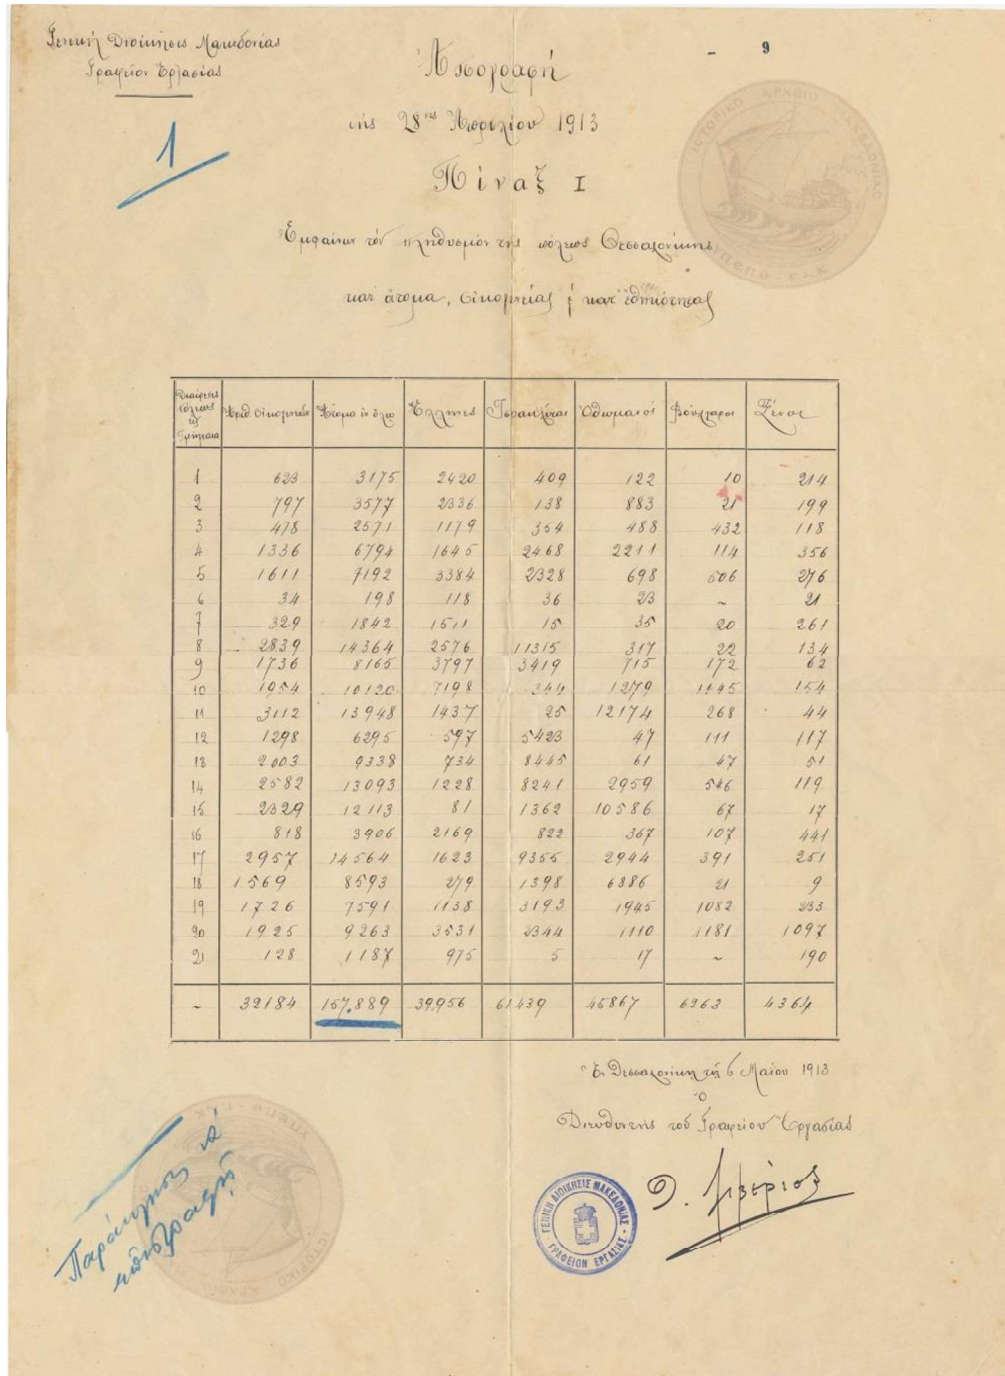 Γενική Διοίκησις Μακεδονίας
Γραφείον Εργασίας
1
- 9
Απογραφή
της 28ης Απριλίου 1913
Πίναξ I
Εμφαίνων τόν πληθυσμόν της πόλεως Θεσσαλονίκης
κατ' άτομα, οικογενείας ή κατ' εθνικότητας
Διαίρεσις πόλεως εις Τμήματα Αριθ. οικογενειών Άτομα εν όλω Έλληνες Ισραηλίται Οθωμανοί Βούλγαροι Ξένοι
1 623 3175 2420 409 122 10 214
2 797 3577 2336 138 883 21 199
3 478 2571 1179 354 488 432 118
4 1336 6794 1645 2468 2211 114 356
5 1611 7192 3384 2328 698 506 276
6 34 198 118 36 23 ~ 21
7 329 1842 1511 15 35 20 261
8 2839 14364 2576 11315 317 22 134
9 1736 8165 3797 3419 715 172 62
10 1954 10120 7198 344 1279 1145 154
11 3112 13948 1437 25 12174 268 44
12 1298 6295 597 5423 47 111 117
13 2003 9338 734 8445 61 47 51
14 2582 13093 1228 8241 2959 546 119
15 2329 12113 81 1362 10586 67 17
16 818 3906 2169 822 367 107 441
17 2957 14564 1623 9355 2944 391 251
18 1569 8593 279 1398 6886 21 9
19 1726 7591 1138 3193 1945 1082 233
20 1925 9263 3531 2344 1110 1181 1097
21 128 1187 975 5 17 ~ 190
~ 32184 157.889 39.956 61439 45867 6263 4364
Εν Θεσσαλονίκη τη 6 Μαΐου 1913
Ο
Διευθυντής του Γραφείου Εργασίας
ΓΕΝΙΚΗ ΔΙΟΙΚΗΣΙΣ ΜΑΚΕΔΟΝΙΑΣ
ΓΡΑΦΕΙΟΝ ΕΡΓΑΣΙΑΣ
Παράκλησις νά
επιστραφή
ΙΣΤΟΡΙΚΟ ΑΡΧΕΙΟ ΜΑΚΕΔΟΝΙΑΣ
ΥΠΕΠΘ - Γ.Α.Κ